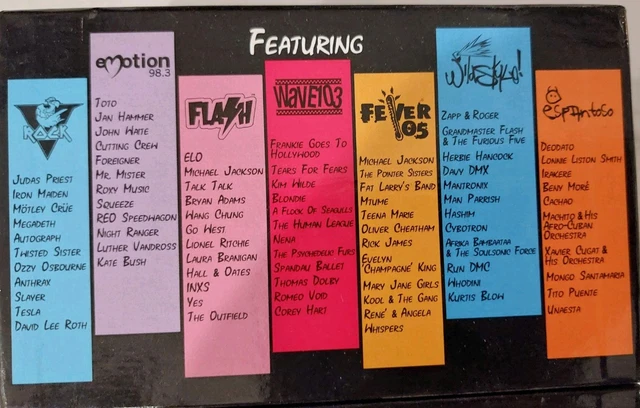 FEATURING
ROCK
JUDAS PRIEST
IRON MAIDEN
MÖTLEY CRÜE
MEGADETH
AUTOGRAPH
TWISTED SISTER
OZZY OSBOURNE
ANTHRAX
SLAYER
TESLA
DAVID LEE ROTH
emotion
98.3
TOTO
JAN HAMMER
JOHN WAITE
CUTTING CREW
FOREIGNER
MR. MISTER
ROXY MUSIC
SQUEEZE
REO SPEEDWAGON
NIGHT RANGER
LUTHER VANDROSS
KATE BUSH
FLASH
ELO
MICHAEL JACKSON
TALK TALK
BRYAN ADAMS
WANG CHUNG
GO WEST
LIONEL RITCHIE
LAURA BRANIGAN
HALL & OATES
INXS
YES
THE OUTFIELD
WAVE103
FRANKIE GOES TO
HOLLYWOOD
TEARS FOR FEARS
KIM WILDE
BLONDIE
A FLOCK OF SEAGULLS
THE HUMAN LEAGUE
NENA
THE PSYCHEDELIC FURS
SPANDAU BALLET
THOMAS DOLBY
ROMEO VOID
COREY HART
FEVER
105
MICHAEL JACKSON
THE POINTER SISTERS
FAT LARRY'S BAND
MTUME
TEENA MARIE
OLIVER CHEATHAM
RICK JAMES
EVELYN
'CHAMPAGNE' KING
MARY JANE GIRLS
KOOL & THE GANG
RENE' & ANGELA
WHISPERS
Wildstyle!
ZAPP & ROGER
GRANDMASTER FLASH
& THE FURIOUS FIVE
HERBIE HANCOCK
DAVY DMX
MANTRONIX
MAN PARRISH
HASHIM
CYBOTRON
AFRIKA BAMBAATAA
& THE SOULSONIC FORCE
RUN DMC
WHODINI
KURTIS BLOW
ESPANTOSO
DEODATO
LONNIE LISTON SMITH
IRAKERE
BENY MORÉ
CACHAO
MACHITO & HIS
AFRO-CUBAN
ORCHESTRA
XAVIER CUGAT &
HIS ORCHESTRA
MONGO SANTAMARIA
TITO PUENTE
UNAESTA